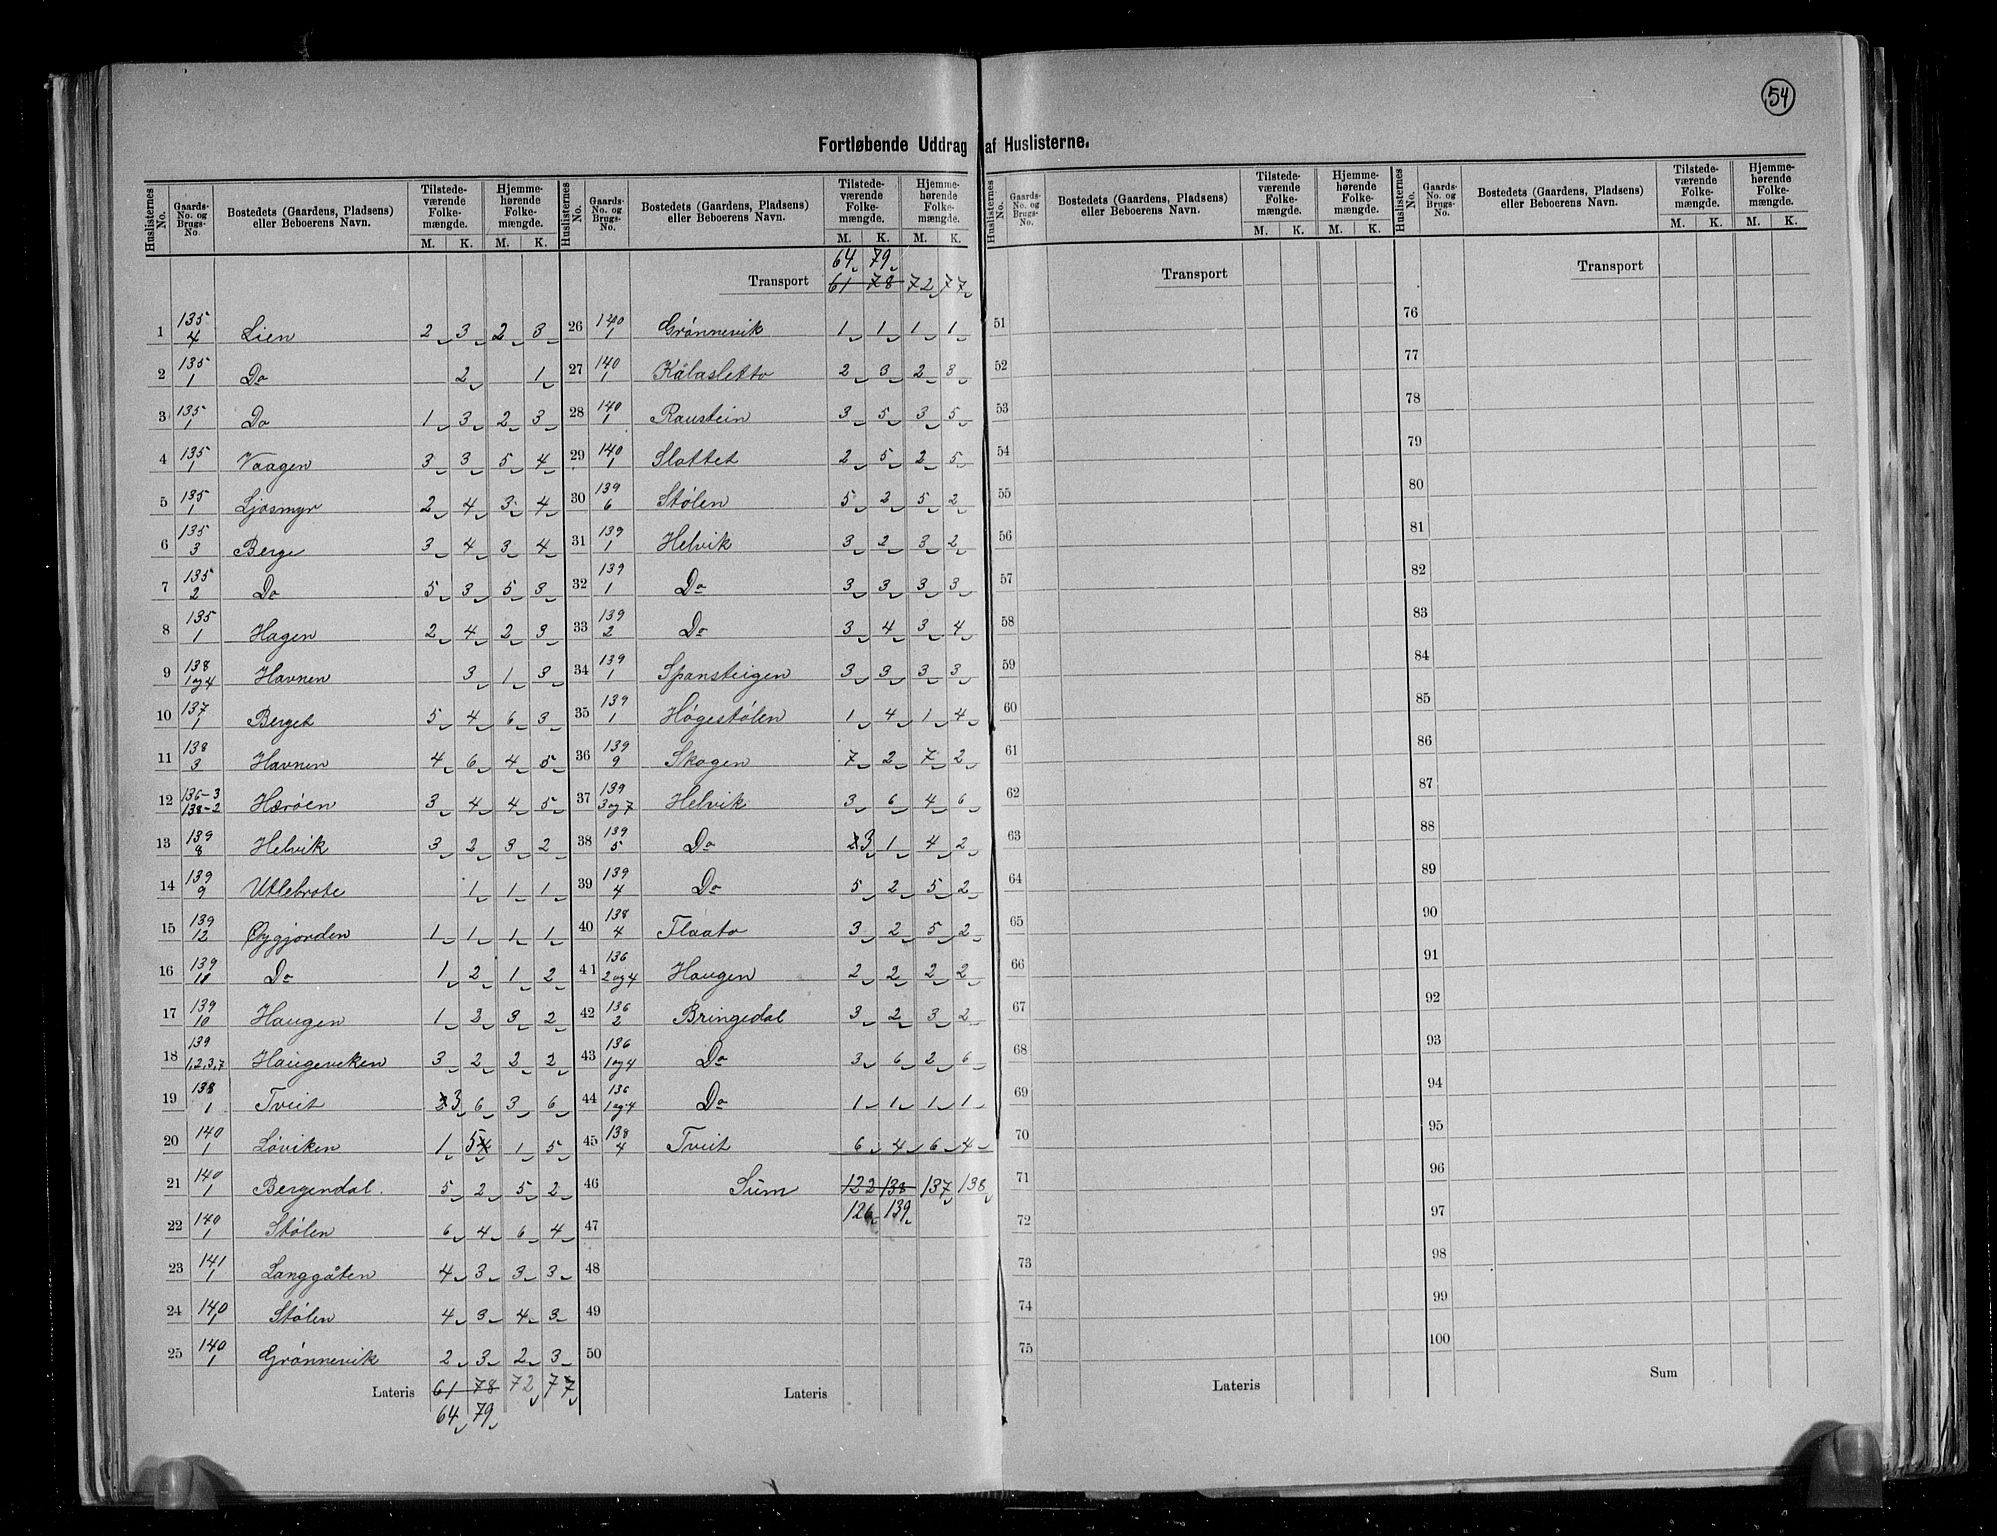 54
Fortløbende Uddrag af Huslisterne.
Huslisternes No. Gaards-No. og Brugs-No. Bostedets (Gaardens, Pladsens) eller Beboerens Navn. Tilstedeværende Folkemængde. M. K. Hjemmehørende Folkemængde. M. K.
1 135/4 Lien 2 3 2 3
2 135/1 Do 2 1
3 135/1 Do 1 3 2 3
4 135/1 Vaagen 3 3 5 4
5 135/1 Ljosmyr 2 4 3 4
6 135/3 Berge 3 4 3 4
7 135/2 Do 5 3 5 3
8 135/1 Hagen 2 4 2 3
9 138/1 og 4 Havnen 3 1 3
10 137/1 Berget 5 4 6 3
11 138/3 Havnen 4 6 4 5
12 136-3 138-2 Hærøen 3 4 4 5
13 139/8 Helvik 3 2 3 2
14 139/9 Utlebrote 1 1 1
15 139/12 Øygjorden 1 1 1 1
16 139/18 Do 1 2 1 2
17 139/10 Haugen 1 3 2
18 139/1,2,3,7 Haugeviken 3 2 2 2
19 138/1 Tveit 3 6 3 6
20 140/1 Løviken 1 5 1 5
21 140/1 Bergendal. 5 2 5 2
22 140/1 Stølen 6 4 6 4
23 141/1 Langgåten 4 3 3 3
24 140/1 Stølen 4 3 4 3
25 140/1 Grønnevik 2 3 2 3
Lateris 61 78 72 77
64 79
Huslisternes No. Gaards-No. og Brugs-No. Bostedets (Gaardens, Pladsens) eller Beboerens Navn. Tilstedeværende Folkemængde. M. K. Hjemmehørende Folkemængde. M. K.
64 79
Transport 61 78 72 77
26 140/1 Grønnevik 1 1 1 1
27 140/1 Kålasletto 2 3 2 3
28 140/1 Raustein 3 5 3 5
29 140/1 Slottet 2 5 2 5
30 139/6 Stølen 5 2 5 2
31 139/1 Helvik 3 2 3 2
32 139/1 Do 3 3 3 3
33 139/2 Do 3 4 3 4
34 139/1 Spansteigen 3 3 3 3
35 139/1 Høgestølen 1 4 1 4
36 139/9 Skogen 7 2 7 2
37 139/3 og 7 Helvik 3 6 4 6
38 139/5 Do 3 1 4 2
39 139/4 Do 5 2 5 2
40 138/4 Flaato 3 2 5 2
41 136/2 og 4 Haugen 2 2 2 2
42 136/2 Bringedal 3 2 3 2
43 136/1 og 4 Do 3 6 2 6
44 136/1 og 4 Do 1 1 1 1
45 138/4 Tveit 6 4 6 4
46 Sum 122 138 137 138
47 126 139
48
49
50
Lateris
Huslisternes No. Gaards-No. og Brugs-No. Bostedets (Gaardens, Pladsens) eller Beboerens Navn. Tilstedeværende Folkemængde. M. K. Hjemmehørende Folkemængde. M. K.
Transport
51
52
53
54
55
56
57
58
59
60
61
62
63
64
65
66
67
68
69
70
71
72
73
74
75
Lateris
Huslisternes No. Gaards-No. og Brugs-No. Bostedets (Gaardens, Pladsens) eller Beboerens Navn. Tilstedeværende Folkemængde. M. K. Hjemmehørende Folkemængde. M. K.
Transport
76
77
78
79
80
81
82
83
84
85
86
87
88
89
90
91
92
93
94
95
96
97
98
99
100
Sum